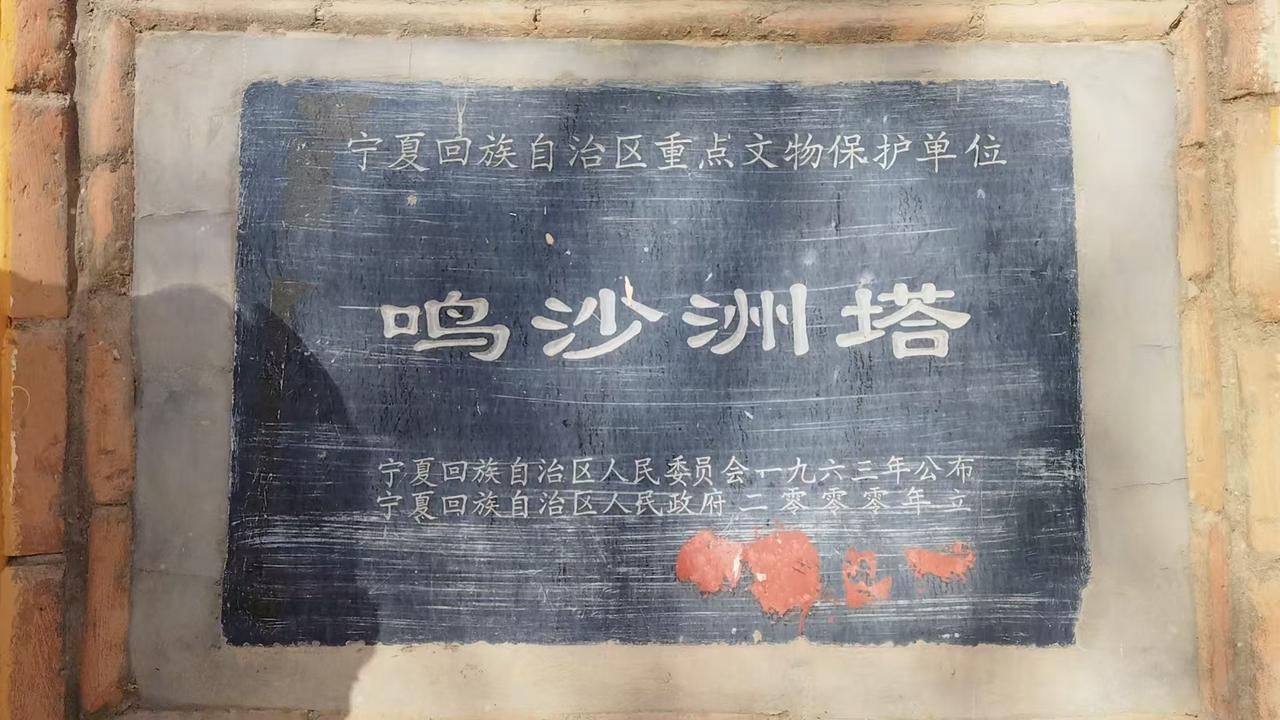 宁夏回族自治区重点文物保护单位
鸣沙洲塔
宁夏回族自治区人民委员会一九六三年公布
宁夏回族自治区人民政府二零零零年立